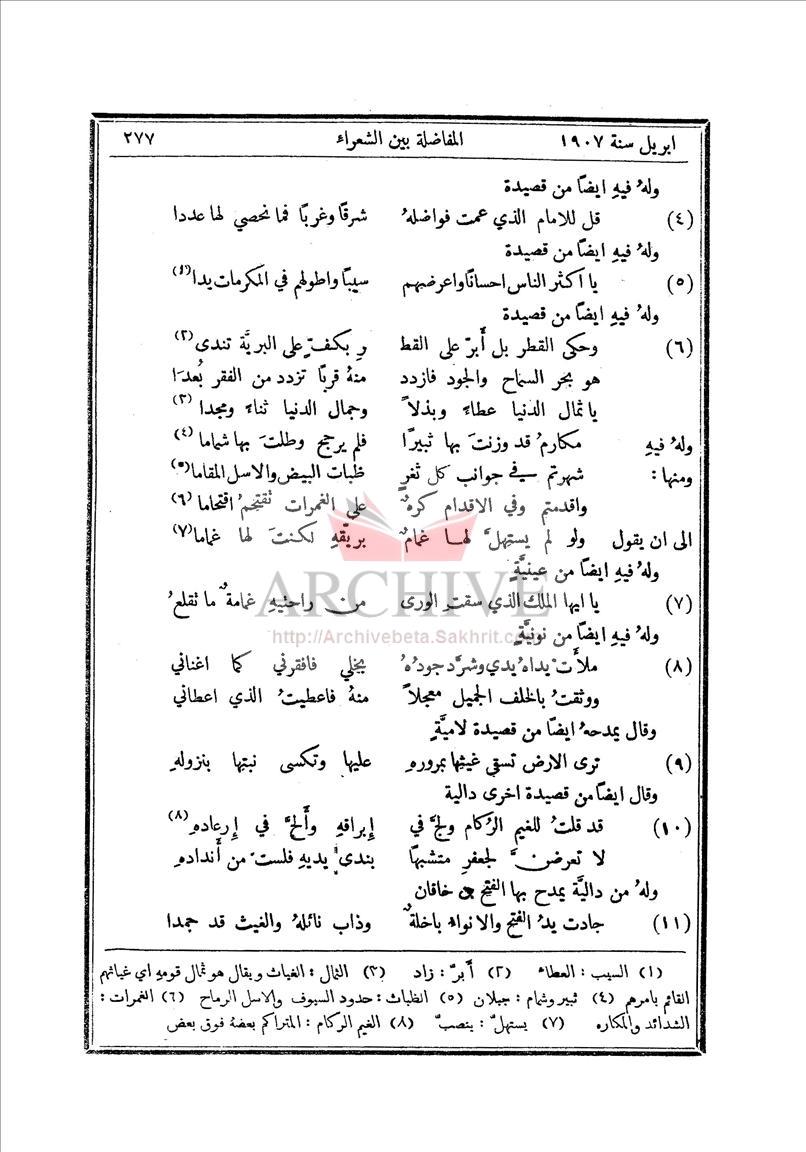 ابريل سنة ١٩٠٧ المفاضلة بين الشعراء ٢٧٧
ولهُ فيهِ ايضًا من قصيدة
(٤) قل للامام الذي عمت فواضلهُ شرقًا وغربًا فما نحصي لها عددا
ولهُ فيهِ ايضًا من قصيدة
(٥) يا اكثر الناس احسانًا واعرضهم سيبًا واطولهم في المكرمات يدا(١)
ولهُ فيهِ ايضًا من قصيدة
(٦) وحكى القطر بل أَبرّ على القط رِ بكفٍّ على البريَّة تندى(٢)
هو بحر السماح والجود فازدد منهُ قربًا تزدد من الفقر بُعدَا
يا ثمال الدنيا عطاءً وبذلاً وجمال الدنيا ثناءً ومجدا(٣)
ولهُ فيهِ مكارمُ قد وزنتَ بها ثبيرًا فلم يرجح وطلتَ بها شماما(٤)
ومنها: شهرتم في جوانب كل ثغرٍ ظبات البيض والاسل المقاما(٥)
واقدمتم وفي الاقدام كرهٌ على الغمرات تقتحمُ اقتحاما(٦)
الى ان يقول ولو لم يستهلَّ لها غمامٌ بريّقهِ لكنتَ لها غماما(٧)
ولهُ فيهِ ايضًا من عينيَّةٍ
ARCHIVE
(٧) يا ايها الملك الذي سقت الورى من راحتيهِ غمامةٌ ما تقلعُ
http://Archivebeta.Sakhrit.co
ولهُ فيهِ ايضًا من نونيَّةٍ
(٨) ملأَتْ يداهُ يدي وشرَّد جودُهُ بخلي فافقرني كما اغناني
ووثقتُ بالخلف الجميل معجلاً منهُ فاعطيتُ الذي اعطاني
وقال يمدحهُ ايضًا من قصيدة لاميَّةٍ
(٩) ترى الارض تسقى غيثها بمرورهِ عليها وتكسى نبتها بنزولهِ
وقال ايضًا من قصيدة اخرى دالية
(١٠) قد قلتُ للغيم الرُكام ولجَّ في إِبراقهِ وأَلحَّ في إِرعادهِ(٨)
لا تعرضنَّ لجعفرٍ متشبهًا بندى يديهِ فلستَ من أَندادهِ
ولهُ من داليَّة يمدح بها الفتح بن خاقان
(١١) جادت يدُ الفتح والانواء باخلةٌ وذاب نائلهُ والغيث قد جمدا
(١) السيب: العطاء (٢) أَبرّ: زاد (٣) الثمال: الغياث ويقال هو ثمال قومهِ اي غياثهم
القائم بامرهم (٤) ثبير وشمام: جبلان (٥) الظبات: حدود السيوف والاسل الرماح (٦) الغمرات:
الشدائد والمكاره (٧) يستهلّ: ينصبّ (٨) الغيم الركام: المتراكم بعضهُ فوق بعض